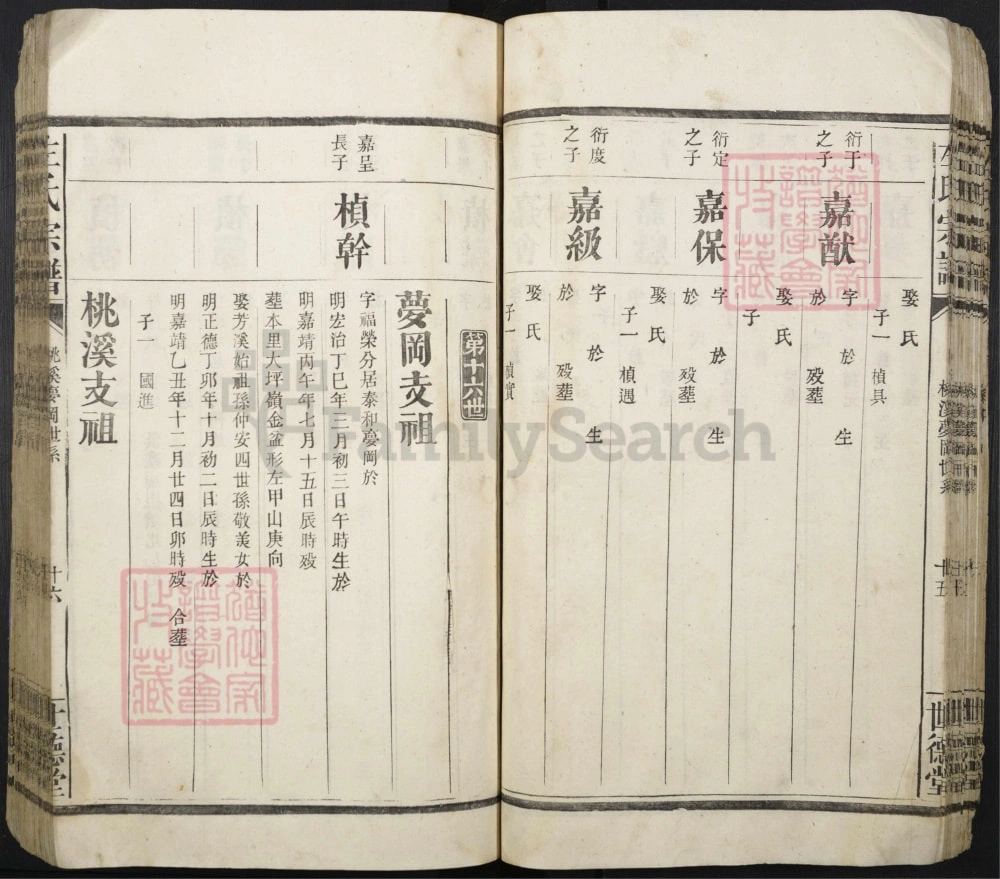 左氏宗譜
桃溪夢岡世系
廿五
世德堂
衍于
之子
嘉猷
娶氏
子一 楨具
字 於 生
於 歿塟
衍定
之子
嘉保
娶氏
子
字 於 生
於 歿塟
衍度
之子
嘉級
娶氏
子一 楨遇
字 於 生
於 歿塟
娶氏
子一 楨實
第十六世
夢岡支祖
嘉呈
長子
楨幹
字福榮分居泰和夢岡於
明宏治丁巳年三月初三日午時生於
明嘉靖丙午年七月十五日辰時歿
塟本里大坪嶺金盆形左甲山庚向
娶芳溪始祖孫仲安四世孫敬美女於
明正德丁卯年十月初二日辰時生於
明嘉靖乙丑年十二月廿四日卯時歿 合塟
子一 國進
桃溪支祖
左氏宗譜
桃溪夢岡世系
廿六
世德堂
FamilySearch